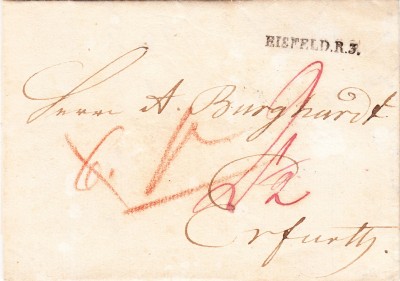 EISFELD.R.3.
Herrn A. Burghardt
6.
Erfurth.